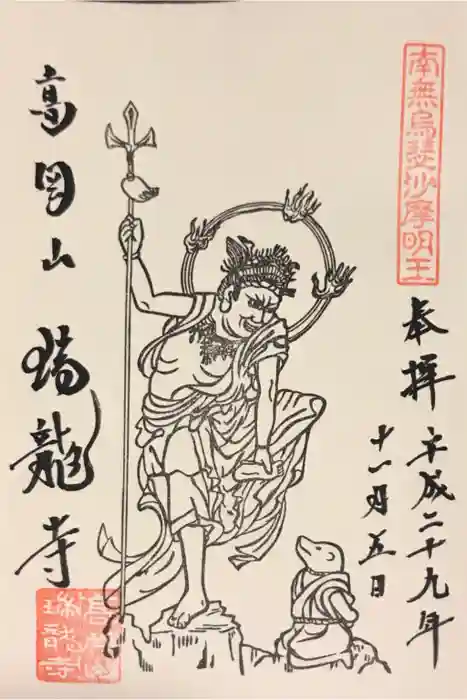 南無烏瑟沙摩明王
奉拝
平成二十九年
十一月五日
高岡山
瑞龍寺
高岡山
瑞龍寺